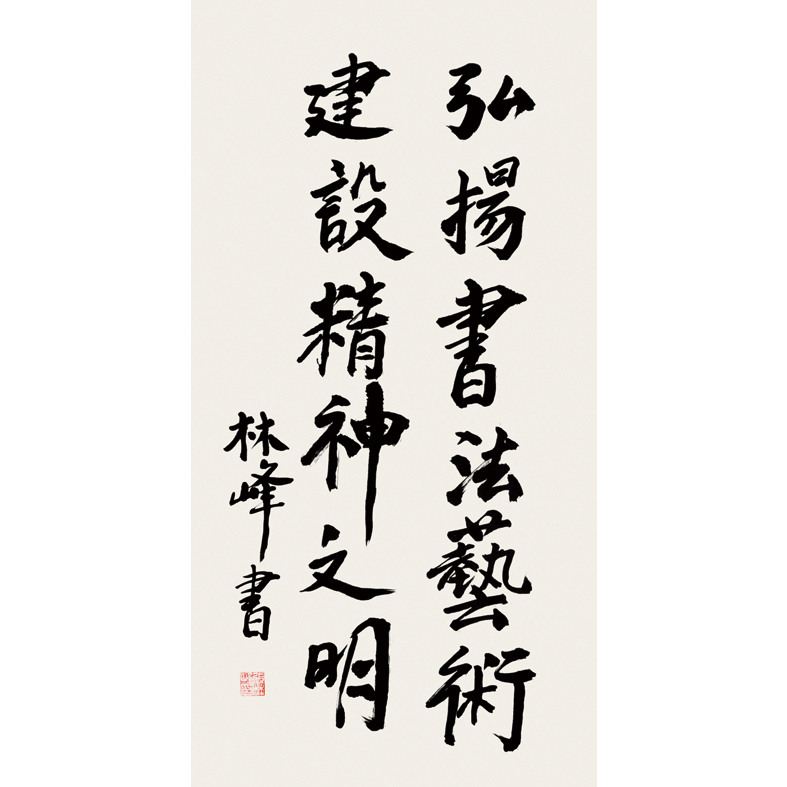 弘揚書法藝術
建設精神文明
林峰書